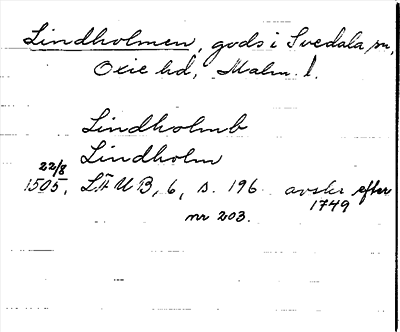 Lindholmen, gods i Svedala sn,
Oxie hd, Malm. l.
Lindholmb
Lindholm
22/8
1505, LÄUB, 6, s. 196 avskr efter
1749
nr 203.